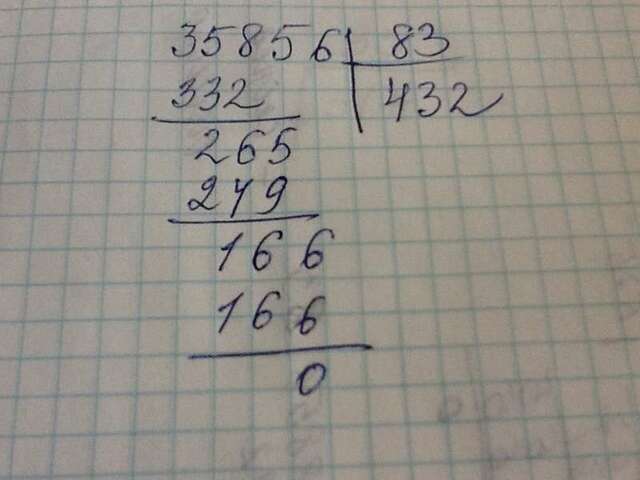 35856 83
332 432
265
249
166
166
0